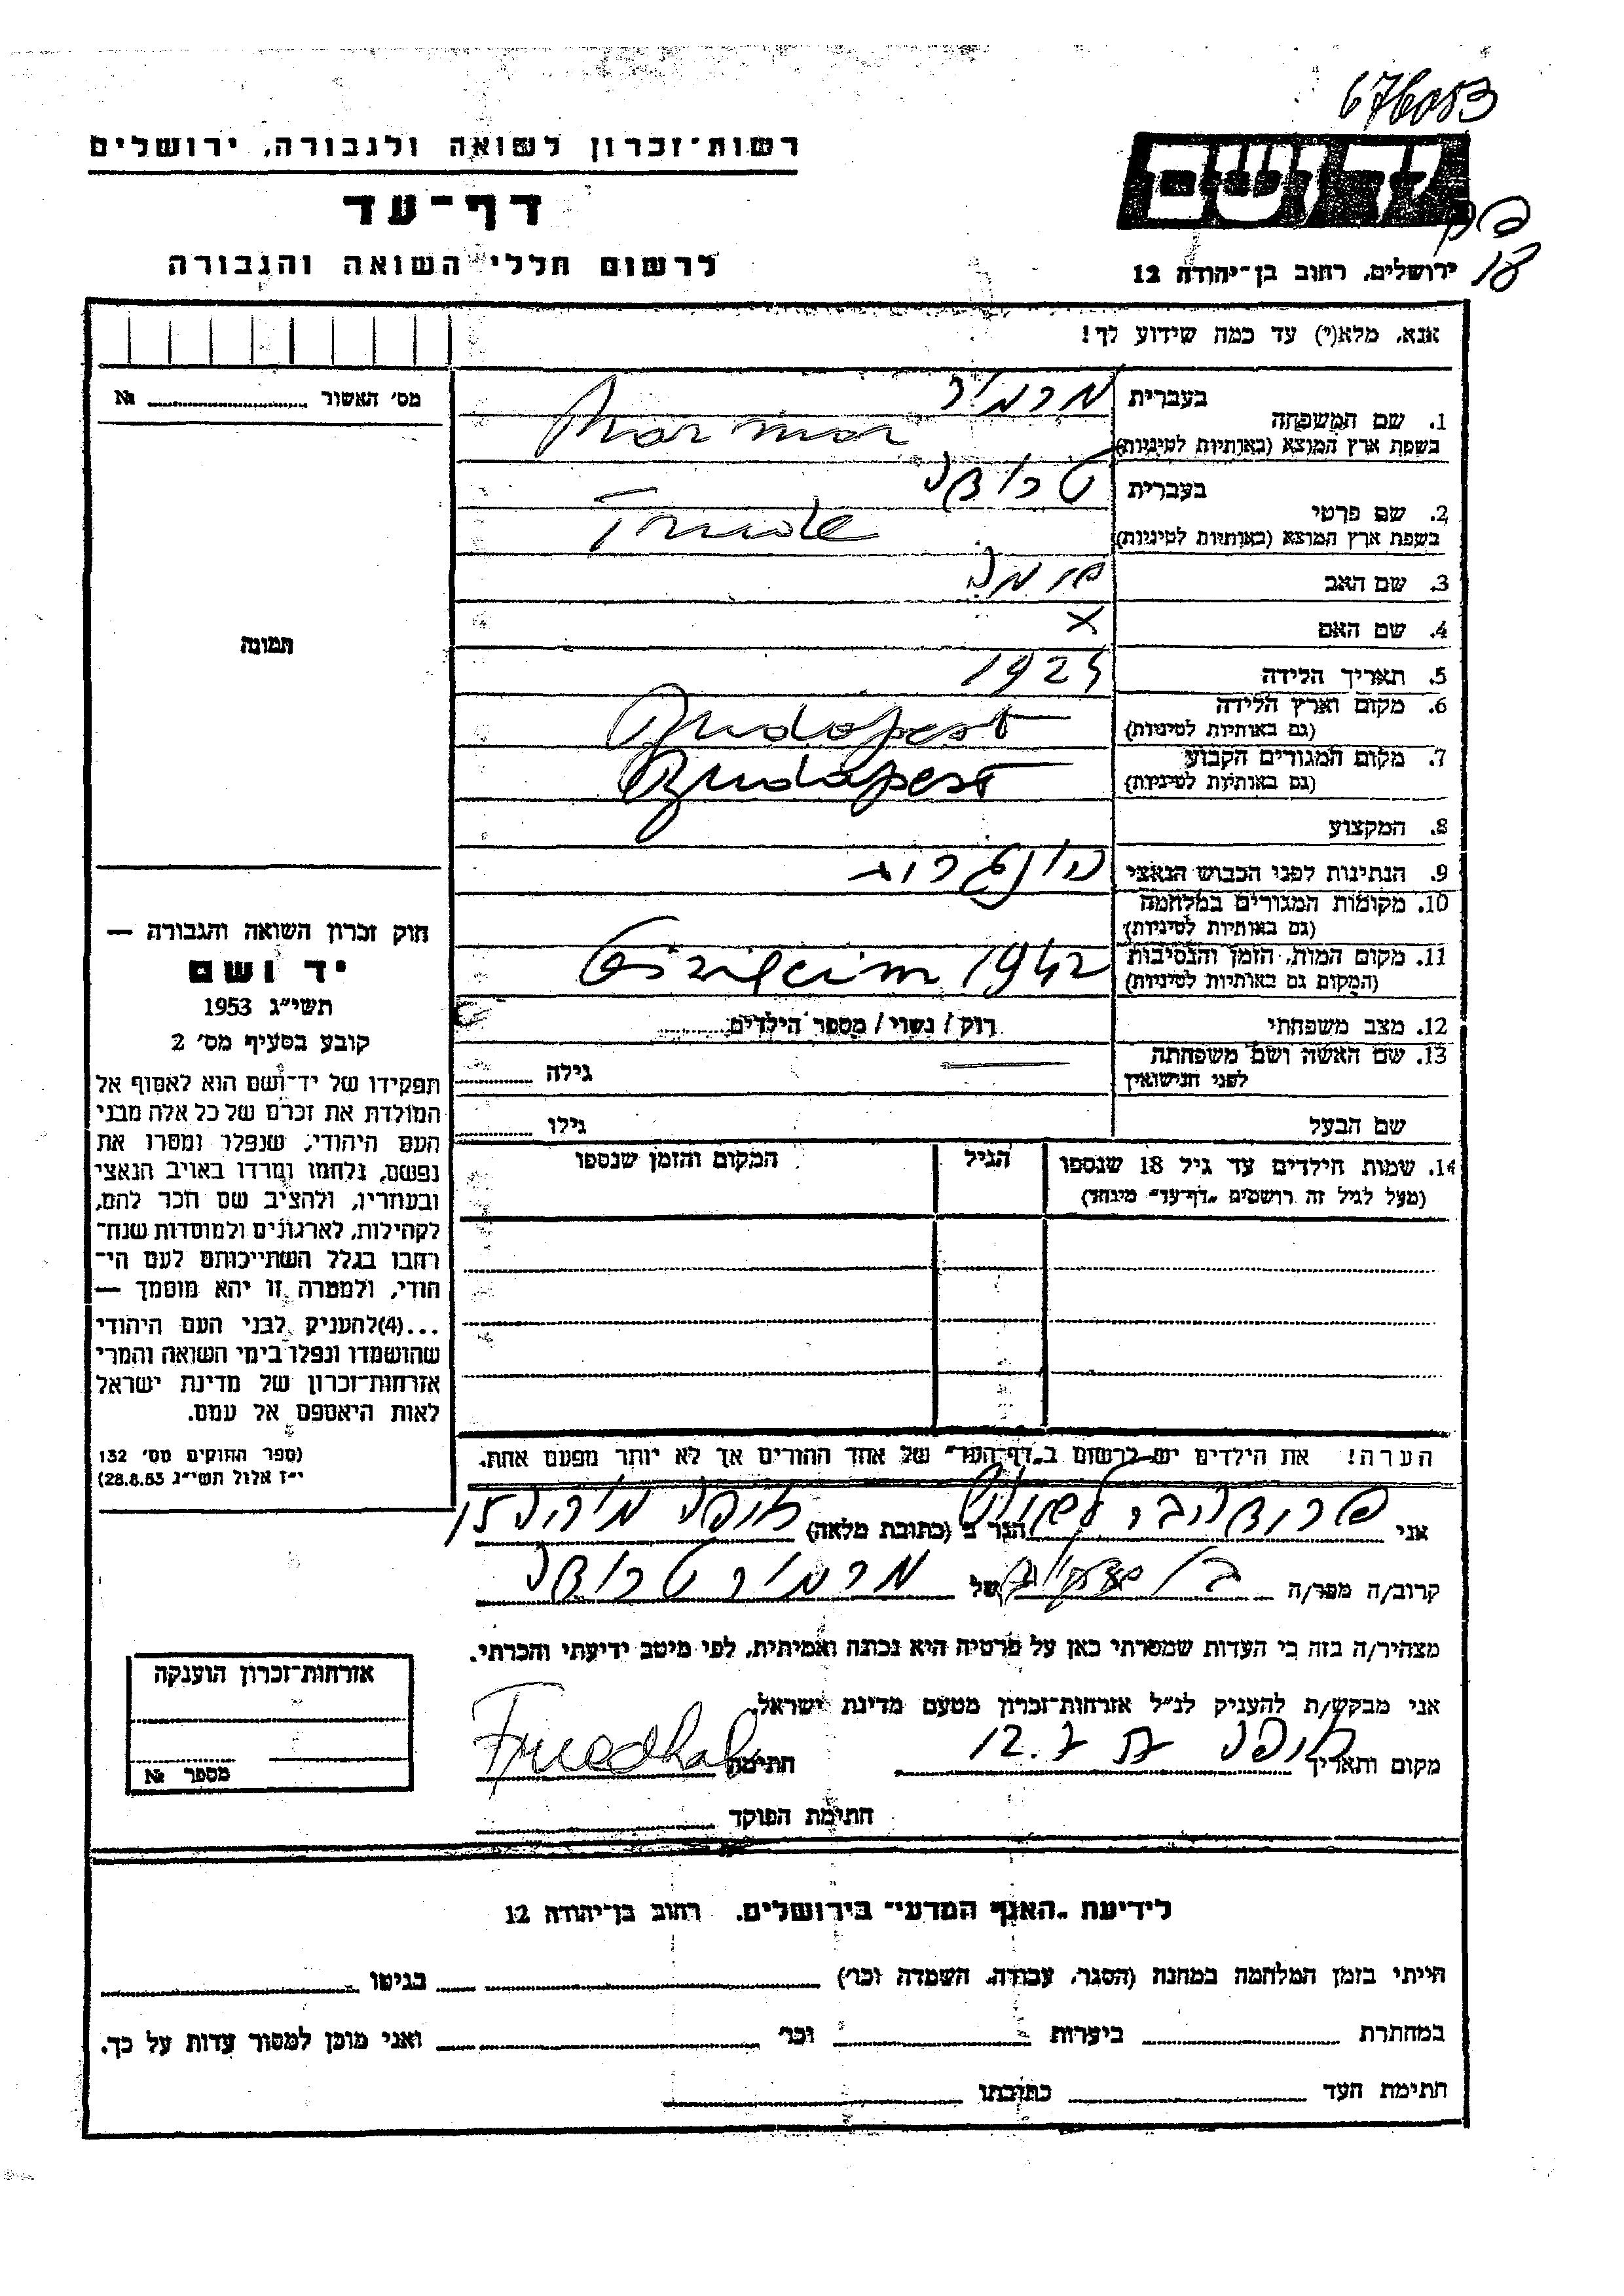 676053
רשות־זכרון לשואה ולגבורה, ירושלים
דף־עד
לרשום חללי השואה והגבורה
ירושלים, רחוב בן־יהודה 12
אנא, מלא(י) עד כמה שידוע לך!
מס׳ האשור № 
1. שם המשפחה
בעברית מרמור
בשפת ארץ המוצא (באותיות לטיניות) Marmor
2. שם פרטי
בעברית טרודה
בשפת ארץ המוצא (באותיות לטיניות) Trude
3. שם האב
4. שם האם X
5. תאריך הלידה 1925
6. מקום וארץ הלידה
(גם באותיות לטיניות) Budapest
7. מקום המגורים הקבוע
(גם באותיות לטיניות) Budapest
8. המקצוע
9. הנתינות לפני הכבוש הנאצי
10. מקומות המגורים במלחמה
(גם באותיות לטיניות)
11. מקום המות, הזמן והנסיבות
(המקום גם באותיות לטיניות) 1942
12. מצב משפחתי רוק / נשוי / מספר הילדים
13. שם האשה ושם משפחתה
לפני הנישואין
גילה
שם הבעל
גילו
תמונה
חוק זכרון השואה והגבורה —
יד ושם
תשי״ג 1953
קובע בסעיף מס׳ 2
תפקידו של יד־ושם הוא לאסוף אל
המולדת את זכרם של כל אלה מבני
העם היהודי, שנפלו ומסרו את
נפשם, נלחמו ומרדו באויב הנאצי
ובעוזריו, ולהציב שם וזכר להם,
לקהילות, לארגונים ולמוסדות שנח־
רחבו בגלל השתייכותם לעם הי־
הודי, ולמטרה זו יהא מוסמך —
...(4)להעניק לבני העם היהודי
שהושמדו ונפלו בימי השואה והמרי
אזרחות־זכרון של מדינת ישראל
לאות היאספם אל עמם.
(ספר החוקים מס׳ 132
י״ז אלול תשי״ג 28.8.53)
14. שמות הילדים עד גיל 18 שנספו
(מעל לגיל זה רושמים „דף־עד״ מיוחד)
הגיל
המקום והזמן שנספו
הערה! את הילדים יש לרשום ב„דף־העד״ של אחד ההורים אך לא יותר מפעם אחת.
אני הגר ב (כתובת מלאה) חיפה
קרוב/ה מכר/ה של מרמור טרודה
מצהיר/ה בזה כי העדות שמסרתי כאן על פרטיה היא נכונה ואמיתית, לפי מיטב ידיעתי והכרתי.
אני מבקש/ת להעניק לנ״ל אזרחות־זכרון מטעם מדינת ישראל.
מקום ותאריך חיפה חתימה
חתימת הפוקד
אזרחות־זכרון הוענקה
מספר №
לידיעת „האגף המדעי״ בירושלים, רחוב בן־יהודה 12
הייתי בזמן המלחמה במחנה (הסגר, עבודה, השמדה וכר׳) בגיטו
במחתרת ביערות וכר׳ ואני מוכן למסור עדות על כך.
חתימת העד כתובתו